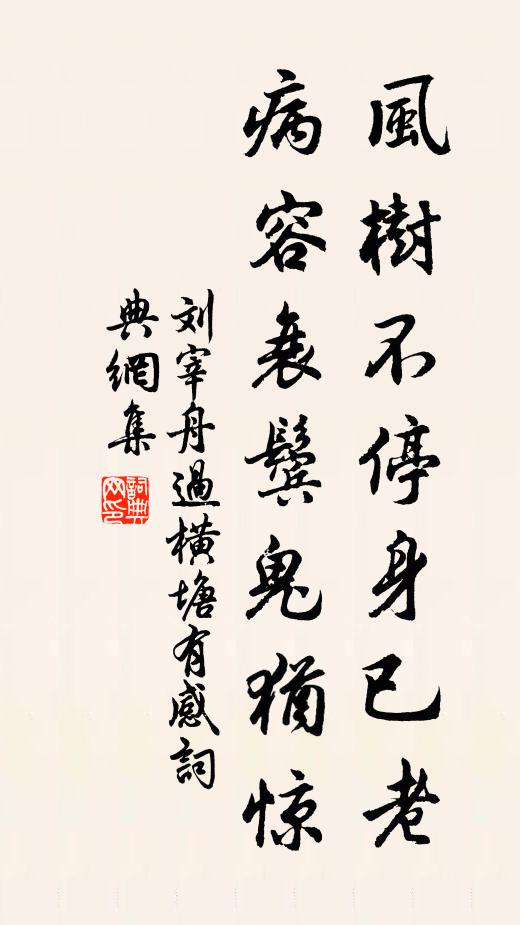 風樹不停身已老
病容衰鬢鬼猶惊
刘宰舟過橫塘有感詞
典網集
詞典网印